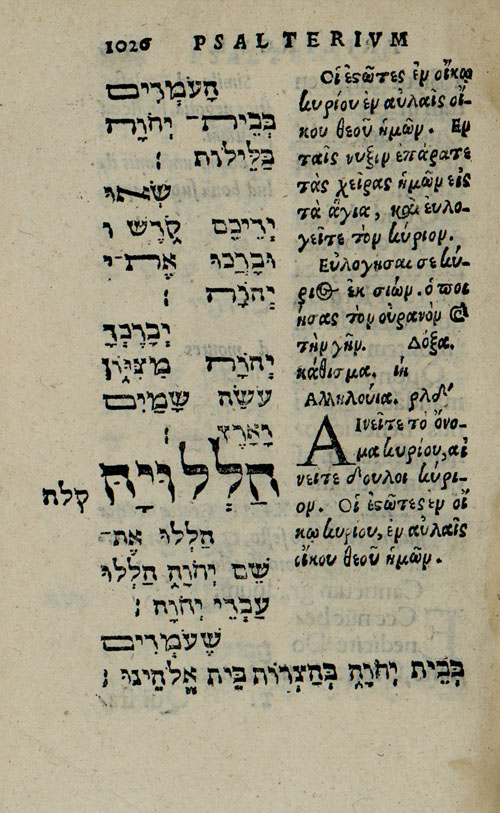 1026 PSALTERIVM
הָעֹמְדִים
בְּבֵית־ יְהוָֹה
בַּלֵּילוֹת ׃
שְׂאוּ
יְדֵיכֶם קֹדֶשׁ ו
וּבָרְכוּ אֶת־י
יְהוָֹה ׃
יְבָרֶכְךָ
יְהוָֹה מִצִּיּוֹן
עֹשֵׂה שָׁמַיִם
וָאָרֶץ ׃
הַלְלוּיָהּ קלה
הַלְלוּ אֶת־
שֵׁם יְהוָֹה הַלְלוּ
עַבְדֵי יְהוָֹה ׃
שֶׁעֹמְדִים
בְּבֵית יְהוָֹה בְּחַצְרוֹת בֵּית אֱלֹהֵינוּ ׃
Οἱ ἑσῶτες ἐν οἴκῳ
κυρίου ἐν αὐλαῖς οἴ-
κου θεοῦ ἡμῶν. Ἐν
ταῖς νυξὶν ἐπάρατε
τὰς χεῖρας ἡμῶν εἰς
τὰ ἅγια, καὶ εὐλο-
γεῖτε τὸν κύριον.
Εὐλογήσαι σε κύ-
ριος ἐκ σιών. ὁ ποι
ήσας τὸν οὐρανὸν καὶ
τὴν γῆν. Δόξα.
κάθισμα. ιη
Αλληλούια. ρλδʹ
ΑΙνεῖτε τὸ ὄνο-
μα κυρίου, αἰ
νεῖτε δοῦλοι κύρι-
ον. Οἱ ἑσῶτες ἐν οἴ
κῳ κυρίου, ἐν αὐλαῖς
οἴκου θεοῦ ἡμῶν.